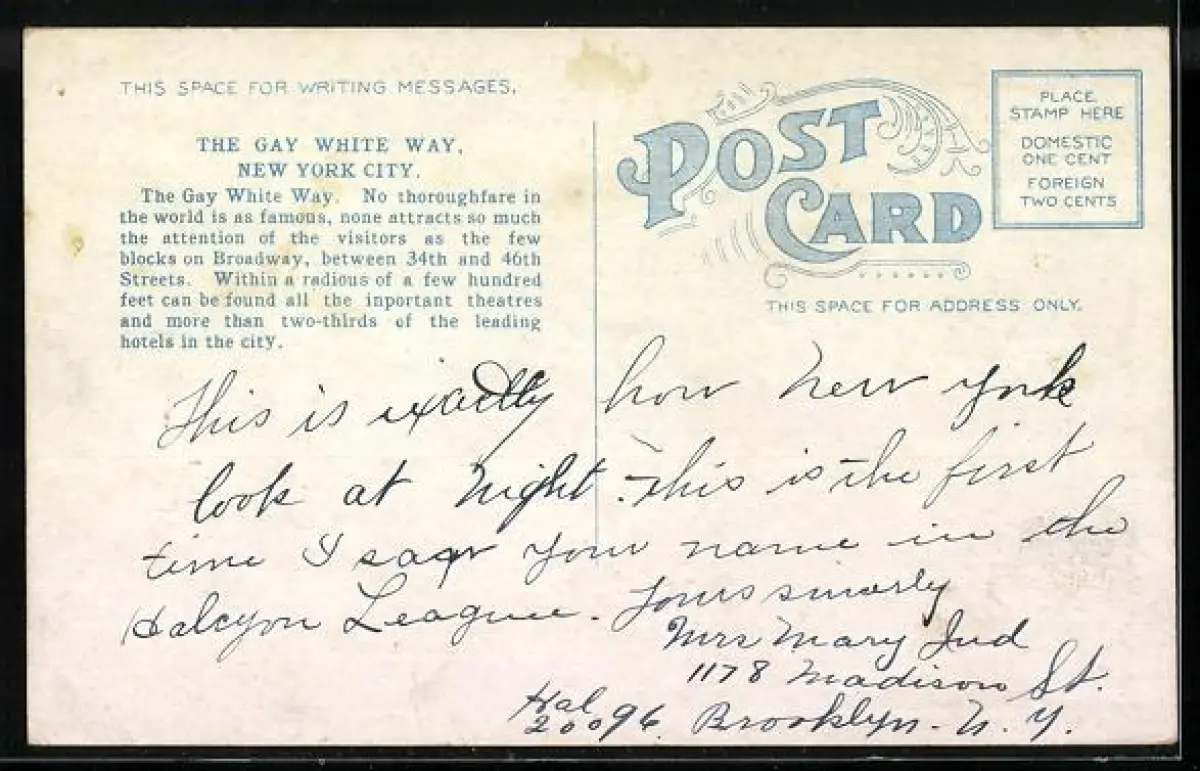 THIS SPACE FOR WRITING MESSAGES.
THE GAY WHITE WAY,
NEW YORK CITY.
The Gay White Way. No thoroughfare in
the world is as famous, none attracts so much
the attention of the visitors as the few
blocks on Broadway, between 34th and 46th
Streets. Within a radious of a few hundred
feet can be found all the inportant theatres
and more than two-thirds of the leading
hotels in the city.
POST
CARD
PLACE
STAMP HERE
DOMESTIC
ONE CENT
FOREIGN
TWO CENTS
THIS SPACE FOR ADDRESS ONLY.
This is exactly how New York
look at Night. This is the first
time I saw your name in the
Halcyon League. Yours sincerly
Mrs Mary Jud
1178 Madison St.
Hal
20096. Brooklyn. N. Y.